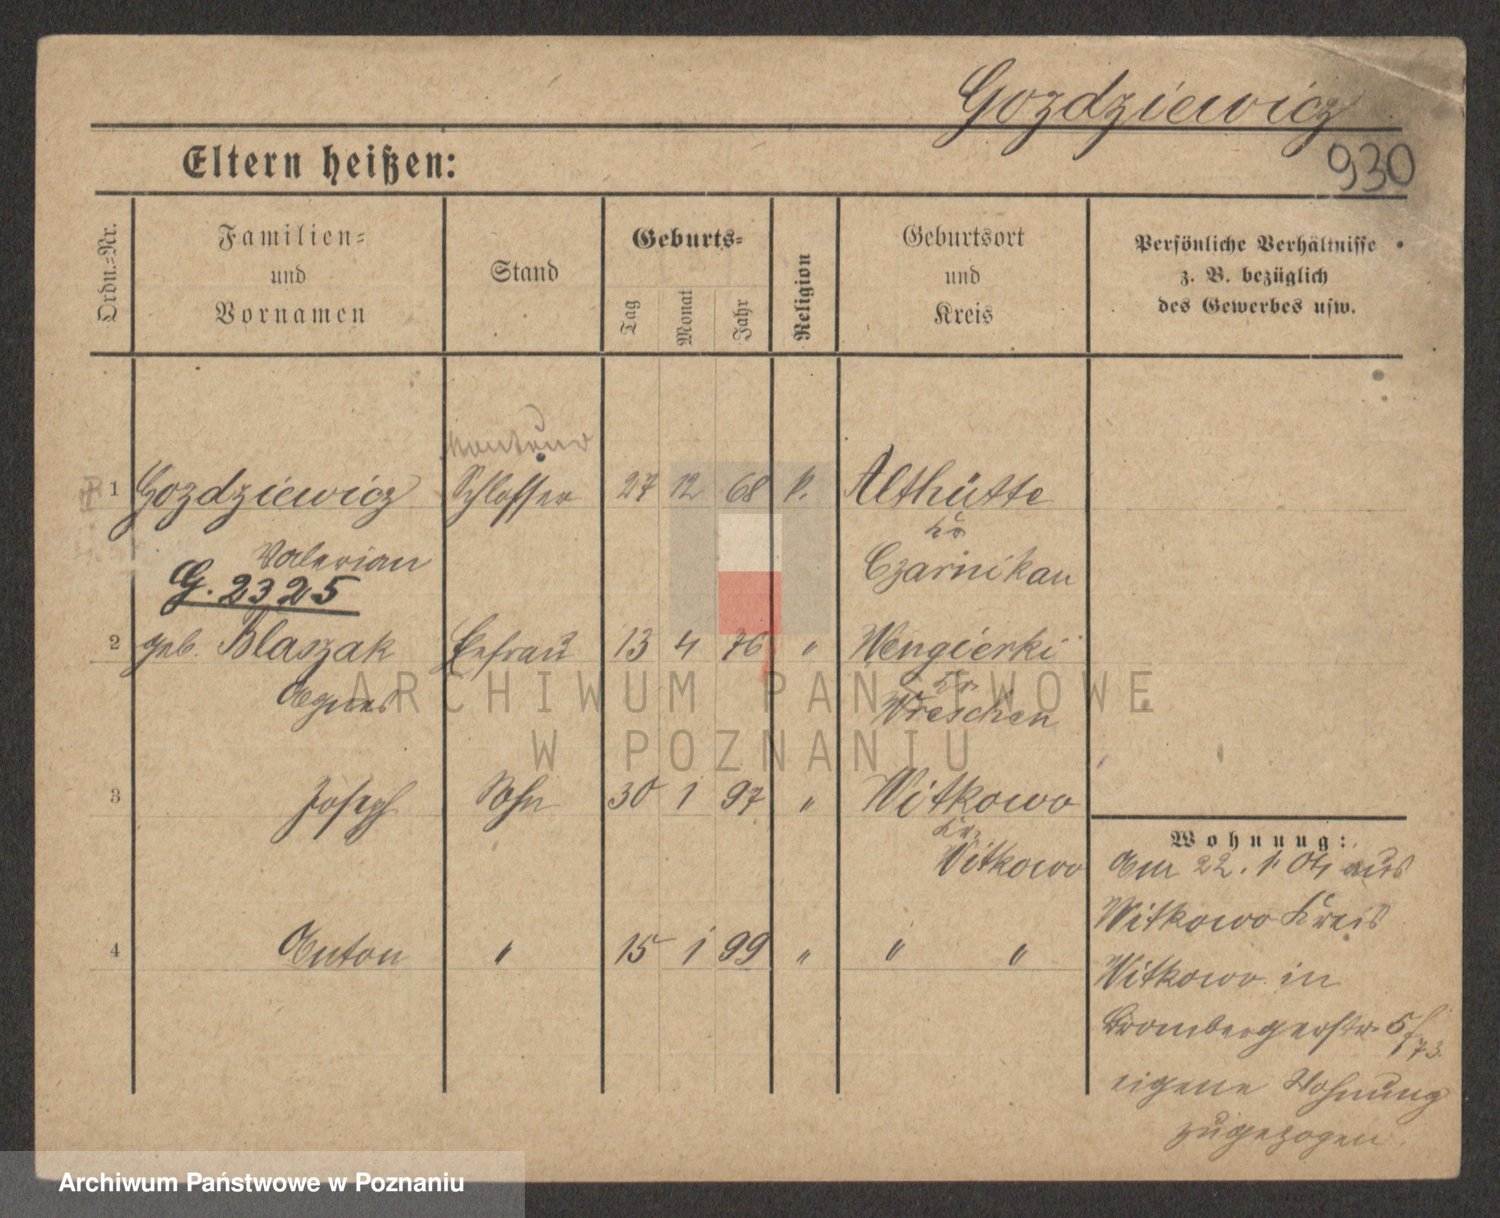 Gozdziewicz
930
Eltern heißen:
Ordn.-Nr.
Familien-
und
Vornamen
Stand
Geburts-
Tag
Monat
Jahr
Religion
Geburtsort
und
Kreis
Persönliche Verhältnisse
z. B. bezüglich
des Gewerbes usw.
Monteur
1 Gozdziewicz Schlosser 27 12 68 k. Althütte
Kr.
Valerian Czarnikau
G. 2325
2 geb. Blaszak Ehefrau 13 4 76 " Wengierki
Kr.
Agnes Wreschen
ARCHIWUM PAŃSTWOWE
W POZNANIU
3 Joseph Sohn 30 1 97 " Witkowo
Kr.
Witkowo
4 Anton " 15 1 99 " " "
Wohnung:
Am 22. 1. 04 aus
Witkowo Kreis
Witkowo in
Brombergerstr. 5
eigene Wohnung
zugezogen.
Archiwum Państwowe w Poznaniu